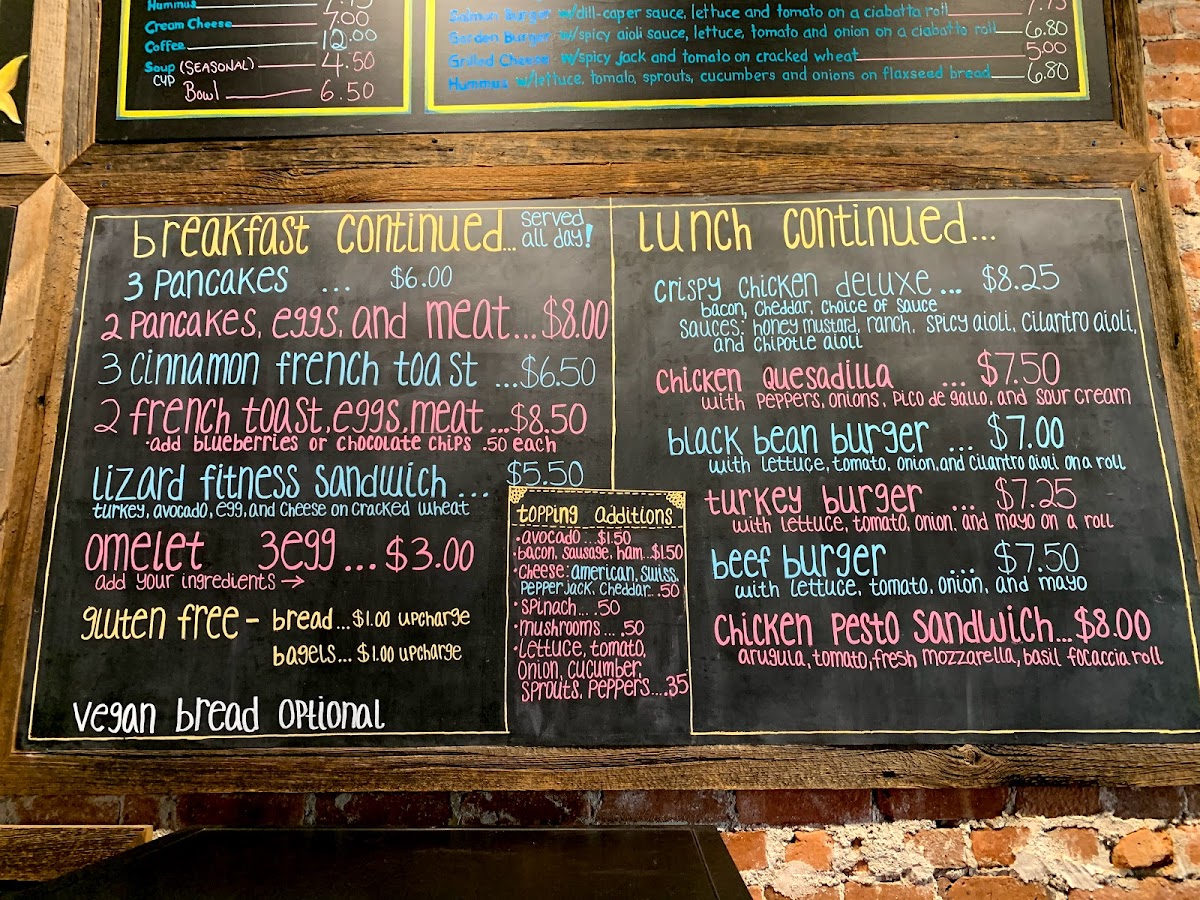 Hummus 7.75
Cream Cheese 7.00
Coffee 12.00
Soup (SEASONAL) 4.50
CUP
Bowl 6.50
Salmon Burger w/dill-caper sauce, lettuce and tomato on a ciabatta roll 7.75
Garden Burger w/spicy aioli sauce, lettuce, tomato and onion on a ciabatta roll 6.80
Grilled Cheese w/spicy jack and tomato on cracked wheat 5.00
Hummus w/lettuce, tomato, sprouts, cucumbers and onions on flaxseed bread 6.80
breakfast continued... served
all day!
3 Pancakes ... $6.00
2 Pancakes, eggs, and meat...$8.00
3 cinnamon french toast ...$6.50
2 french toast, eggs, meat ...$8.50
·add blueberries or chocolate chips .50 each
Lizard fitness Sandwich ... $5.50
turkey, avocado, egg, and cheese on cracked wheat
Omelet 3egg ... $3.00
add your ingredients →
gluten free - bread...$1.00 upcharge
bagels...$1.00 upcharge
vegan bread optional
topping additions
·avocado...$1.50
·bacon, sausage, ham...$1.50
·cheese: american, swiss,
pepper jack, cheddar...50
·spinach... .50
·mushrooms... .50
·lettuce, tomato,
onion, cucumber,
sprouts, peppers....35
Lunch continued...
crispy chicken deluxe... $8.25
bacon, cheddar, choice of sauce
sauces: honey mustard, ranch, spicy aioli, cilantro aioli,
and chipotle aioli
chicken quesadilla ... $7.50
with peppers, onions, pico de gallo, and sour cream
black bean burger ... $7.00
with lettuce, tomato, onion, and cilantro aioli on a roll
turkey burger ... $7.25
with lettuce, tomato, onion, and mayo on a roll
beef burger ... $7.50
with lettuce, tomato, onion, and mayo
chicken pesto sandwich...$8.00
arugula, tomato, fresh mozzarella, basil focaccia roll